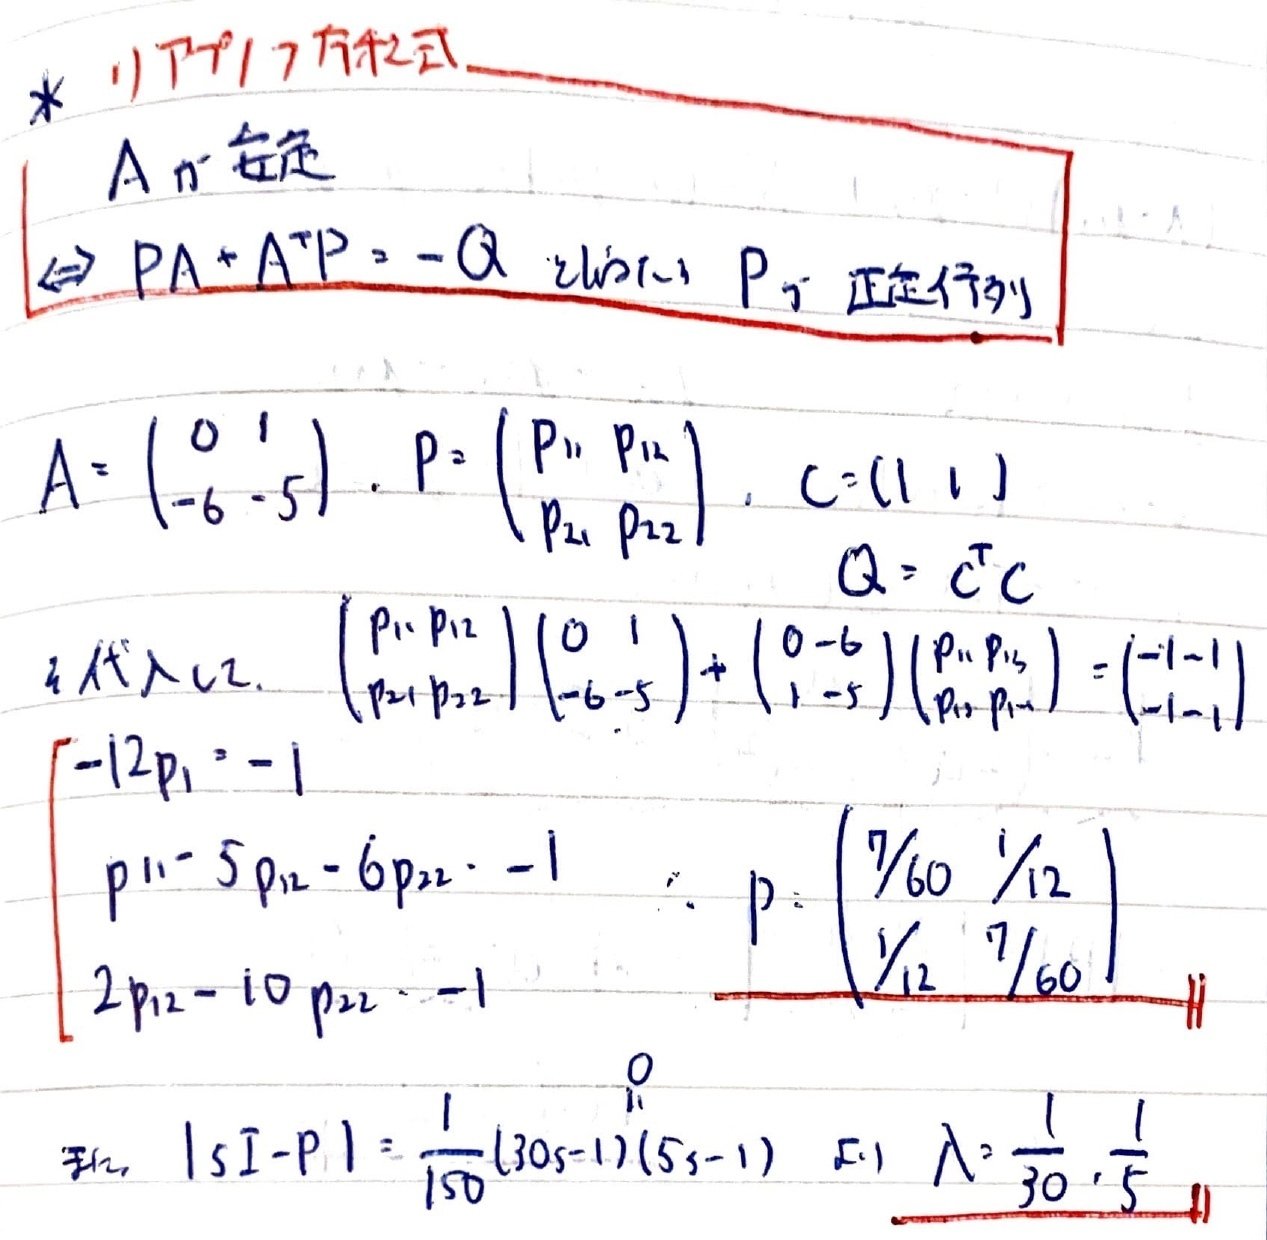 * リアプノフ方程式
Aが安定
⇔ PA + AᵀP = -Q をみたす P が 正定行列
A = (0 1; -6 -5), P = (p₁₁ p₁₂; p₂₁ p₂₂), C = (1 1)
Q = CᵀC
を代入して, (p₁₁ p₁₂; p₂₁ p₂₂)(0 1; -6 -5) + (0 -6; 1 -5)(p₁₁ p₁₂ = (-1 -1; -1 -1)
-12p₁ = -1
p₁₁ - 5p₁₂ - 6p₂₂ = -1
2p₁₂ - 10p₂₂ = -1
∴ P = (7/60 1/12; 1/12 7/60)
また, |sI - P| = 1/150 (30s-1)(5s-1) = 0 より λ = 1/30, 1/5